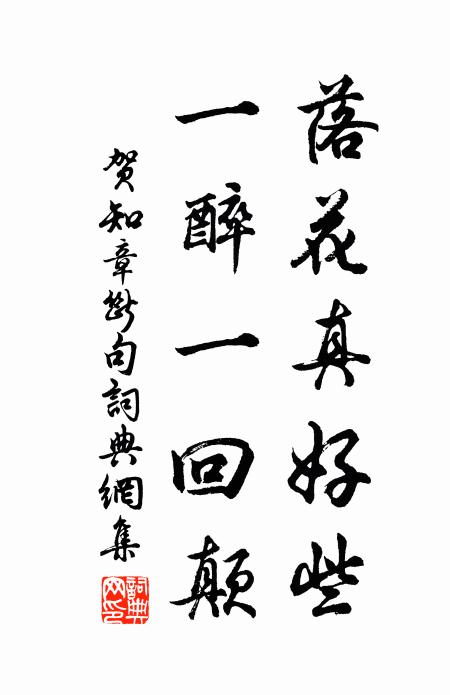 落花真好些
一醉一回颠
贺知章断句詞典網集
詞典
网印